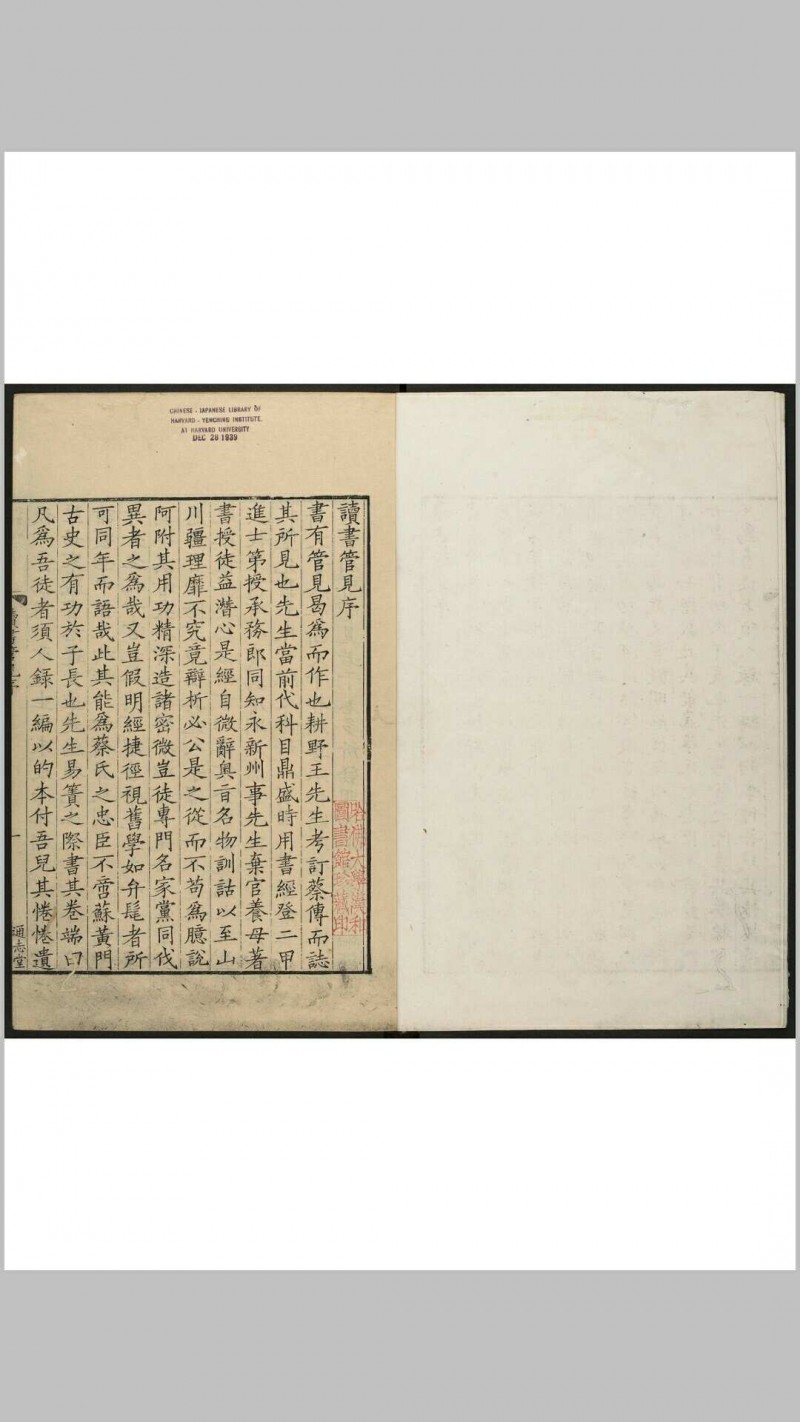 CHINESE - JAPANESE LIBRARY OF
HARVARD - YENCHING INSTITUTE.
AT HARVARD UNIVERSITY
DEC 28 1939
讀書管見序
書有管見曷爲而作也耕野王先生考訂蔡傳而誌
其所見也先生當前代科目鼎盛時用書經登二甲
進士第授承務郎同知永新州事先生棄官養母著
書授徒益潛心是經自微辭奥㫖名物訓詁以至山
川疆理靡不究竟辯析必公是之從而不苟爲臆說
阿附其用功精深造諸密微豈徒專門名家黨同伐
異者之爲哉又豈假明經捷徑視舊學如弁髦者所
可同年而語哉此其能爲蔡氏之忠臣不啻蘇黃門
古史之有功於子長也先生易簀之際書其卷端曰
凡爲吾徒者須人錄一編以的本付吾兒其惓惓遺
讀書管見序
一
通志堂
哈佛大學漢和
圖書館珍藏印